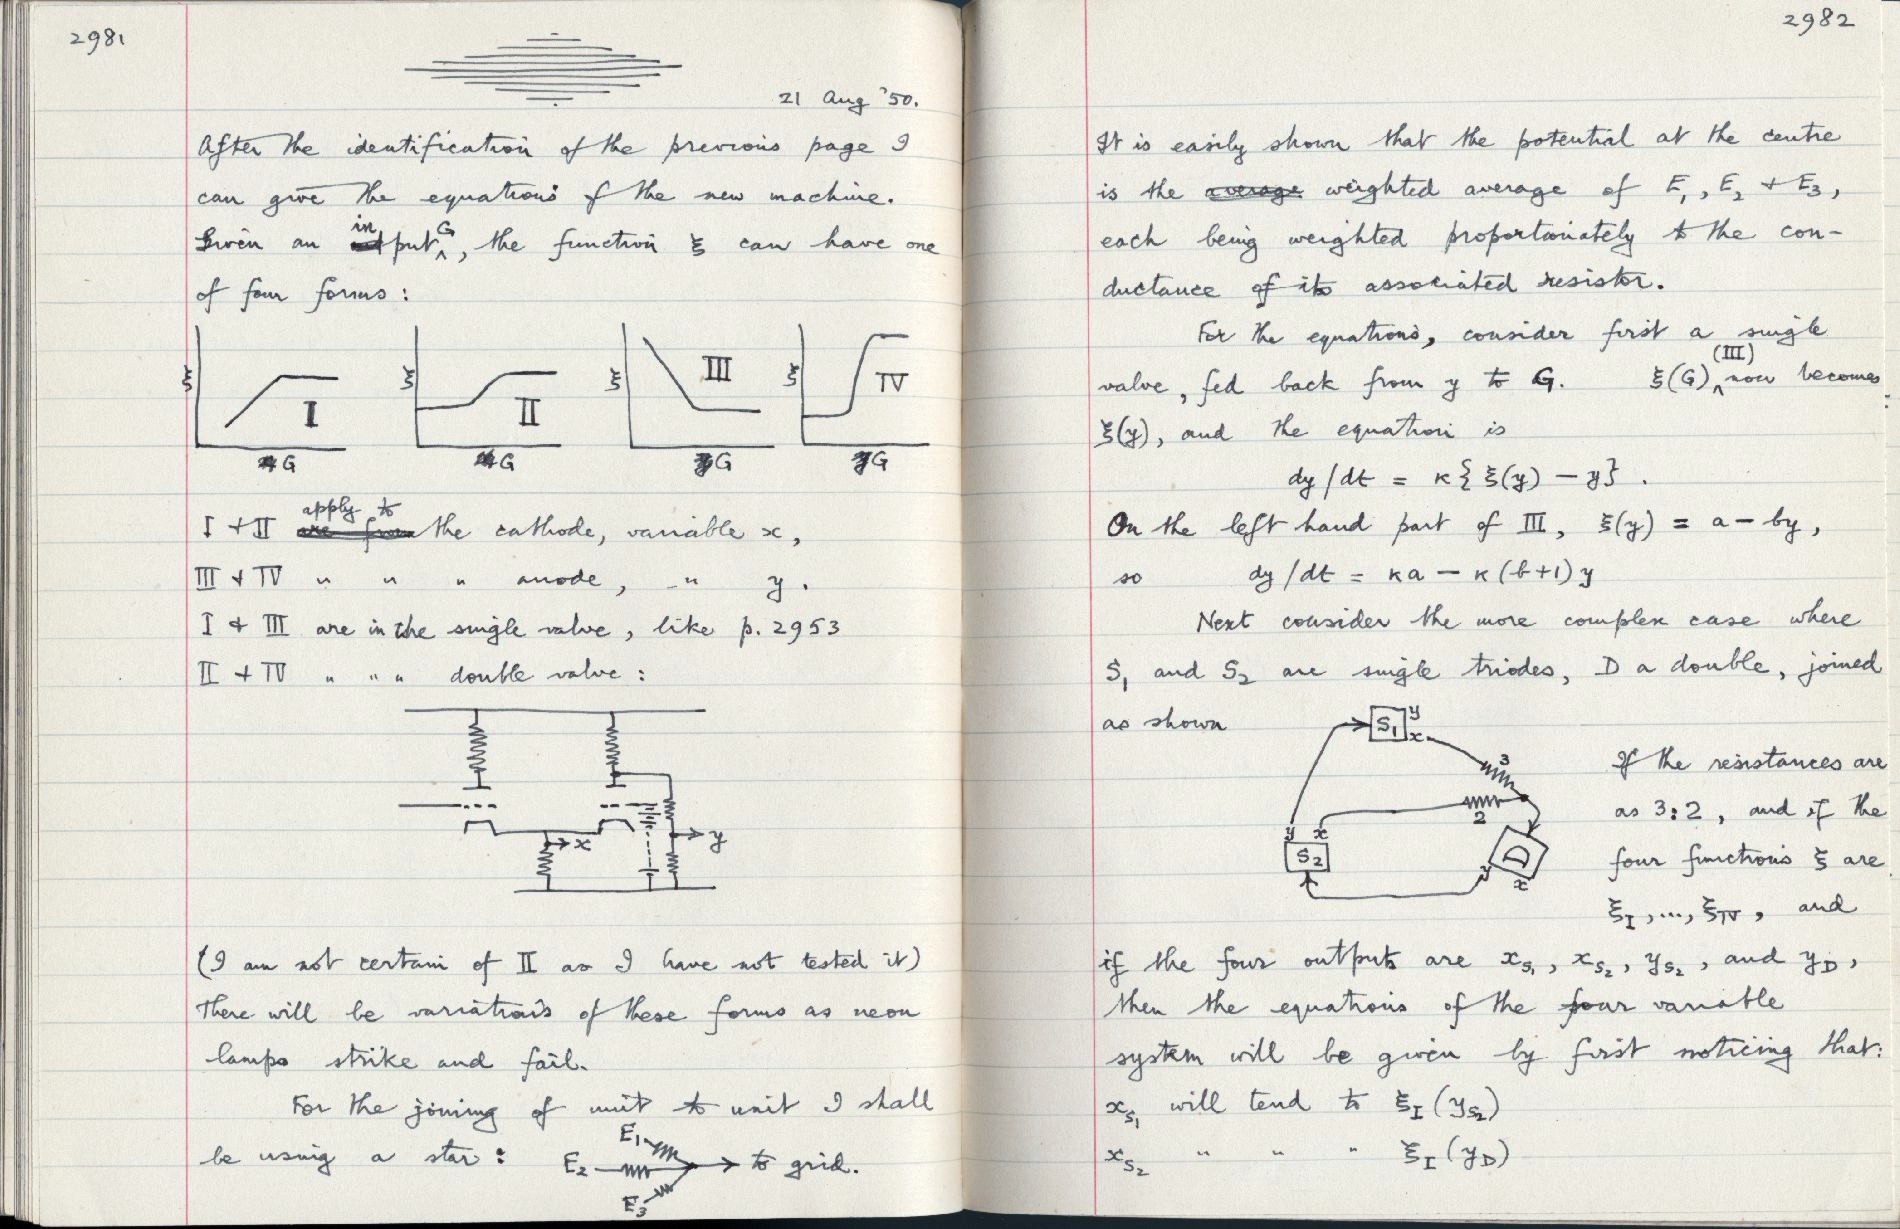 2981
21 Aug '50.
After the identification of the previous page I
can give the equations of the new machine.
Given an input G, the function ξ can have one
of four forms:
ξ I G
ξ II G
ξ III G
ξ IV G
I + II apply to the cathode, variable x,
III + IV " " " anode, " y.
I + III are in the single valve, like p. 2953
II + IV " " " double valve:
x
y
(I am not certain of II as I have not tested it)
There will be variations of these forms as neon
lamps strike and fail.
For the joining of unit to unit I shall
be using a star: E₁ E₂ E₃ to grid.
2982
It is easily shown that the potential at the centre
is the average weighted average of E₁, E₂ + E₃,
each being weighted proportionately to the con-
ductance of its associated resistor.
For the equations, consider first a single
valve, fed back from y to G. ξ(G) (III) now becomes
ξ(y), and the equation is
dy/dt = κ{ξ(y) − y}.
On the left hand part of III, ξ(y) = a − by,
so dy/dt = κa − κ(b+1)y
Next consider the more complex case where
S₁ and S₂ are single triodes, D a double, joined
as shown
S₁ y x
3
2
y x
S₂
D
y
x
If the resistances are
as 3:2, and if the
four functions ξ are
ξ_I, ..., ξ_IV, and
if the four outputs are x_S₁, x_S₂, y_S₂, and y_D,
then the equations of the four variable
system will be given by first noticing that:
x_S₁ will tend to ξ_I(y_S₂)
x_S₂ " " " ξ_I(y_D)